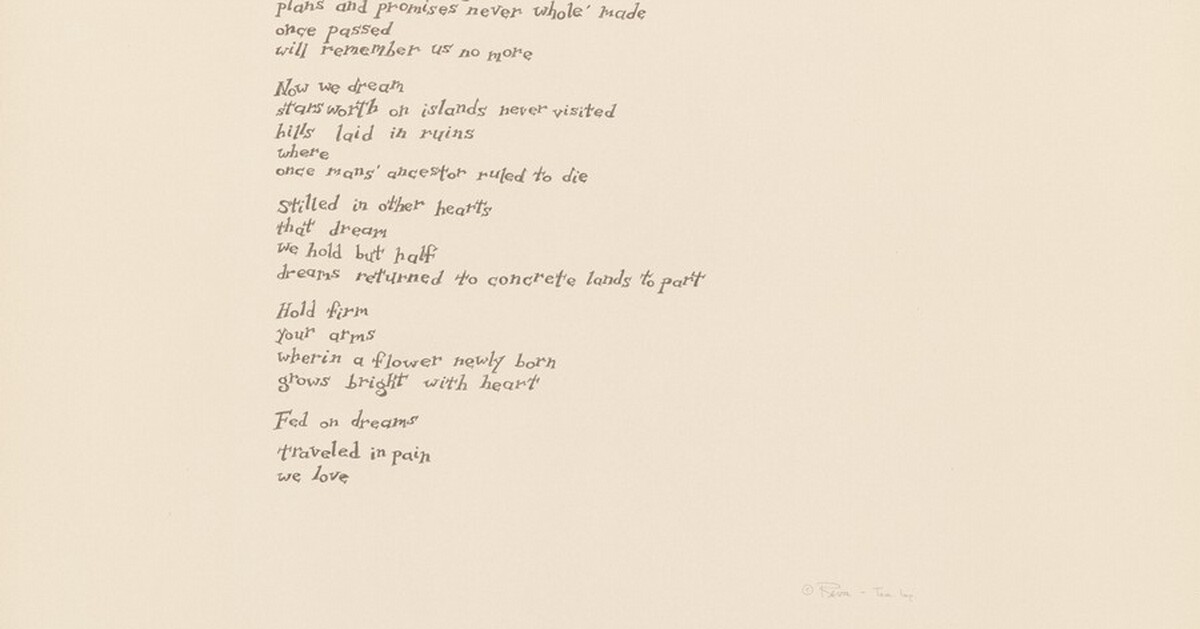 plans and promises never whole' made
once passed
will remember us no more
Now we dream
stars worth on islands never visited
hills laid in ruins
where
once mans' ancestor ruled to die
Stilled in other hearts
that dream
we hold but half
dreams returned to concrete lands to part
Hold firm
your arms
wherin a flower newly born
grows bright with heart
Fed on dreams
traveled in pain
we love